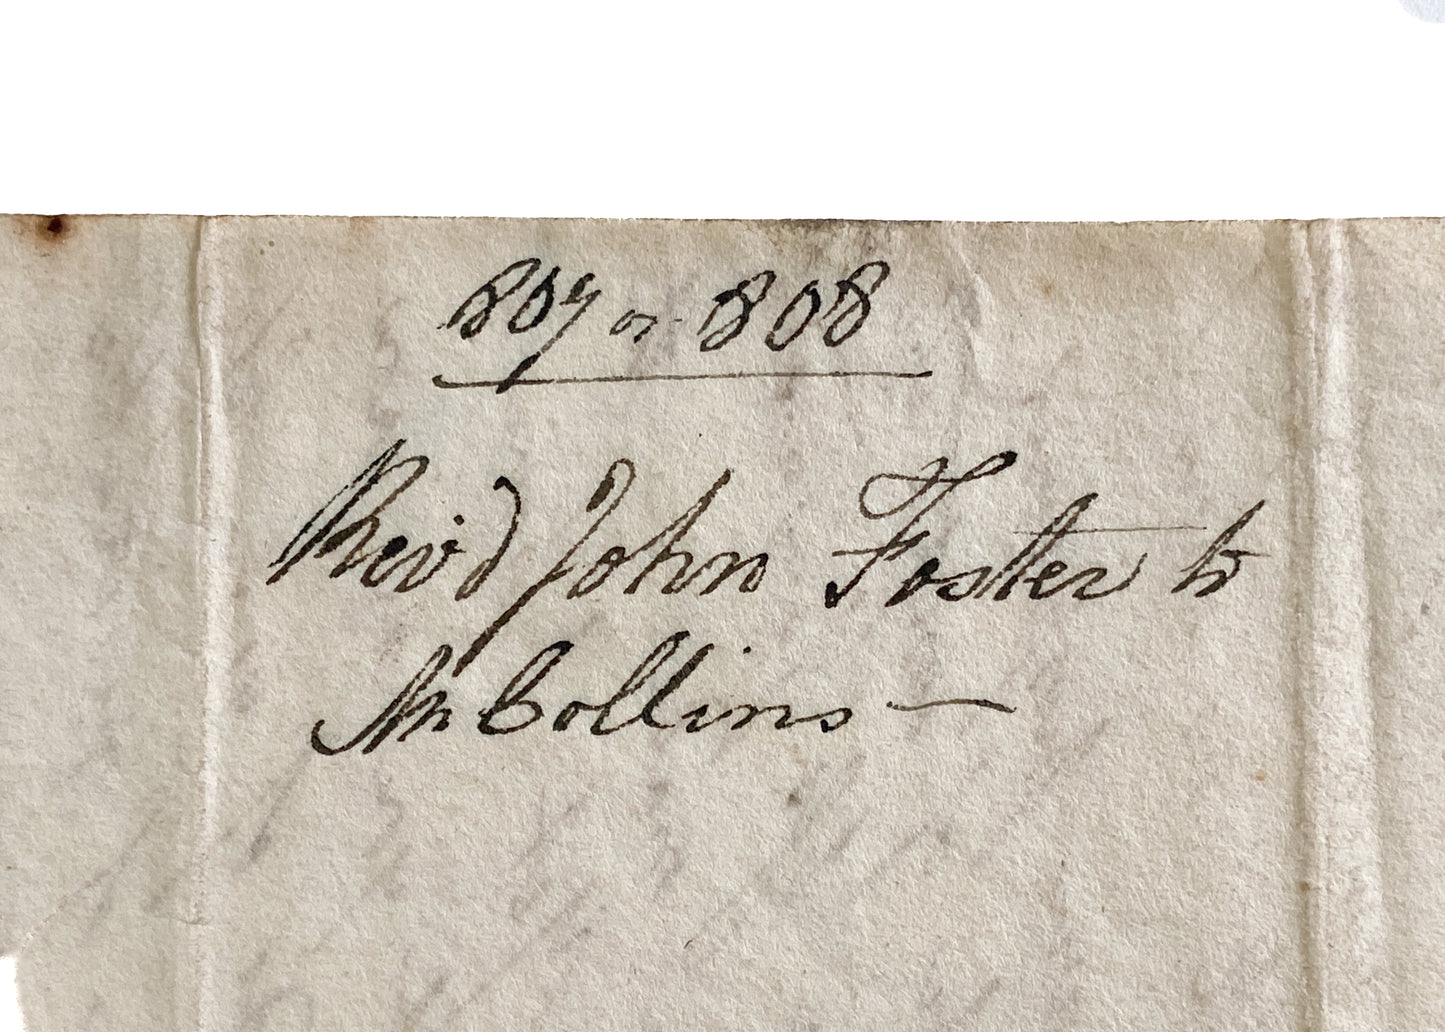 807 or 808
Rev'd John Foster to
Mr Collins —